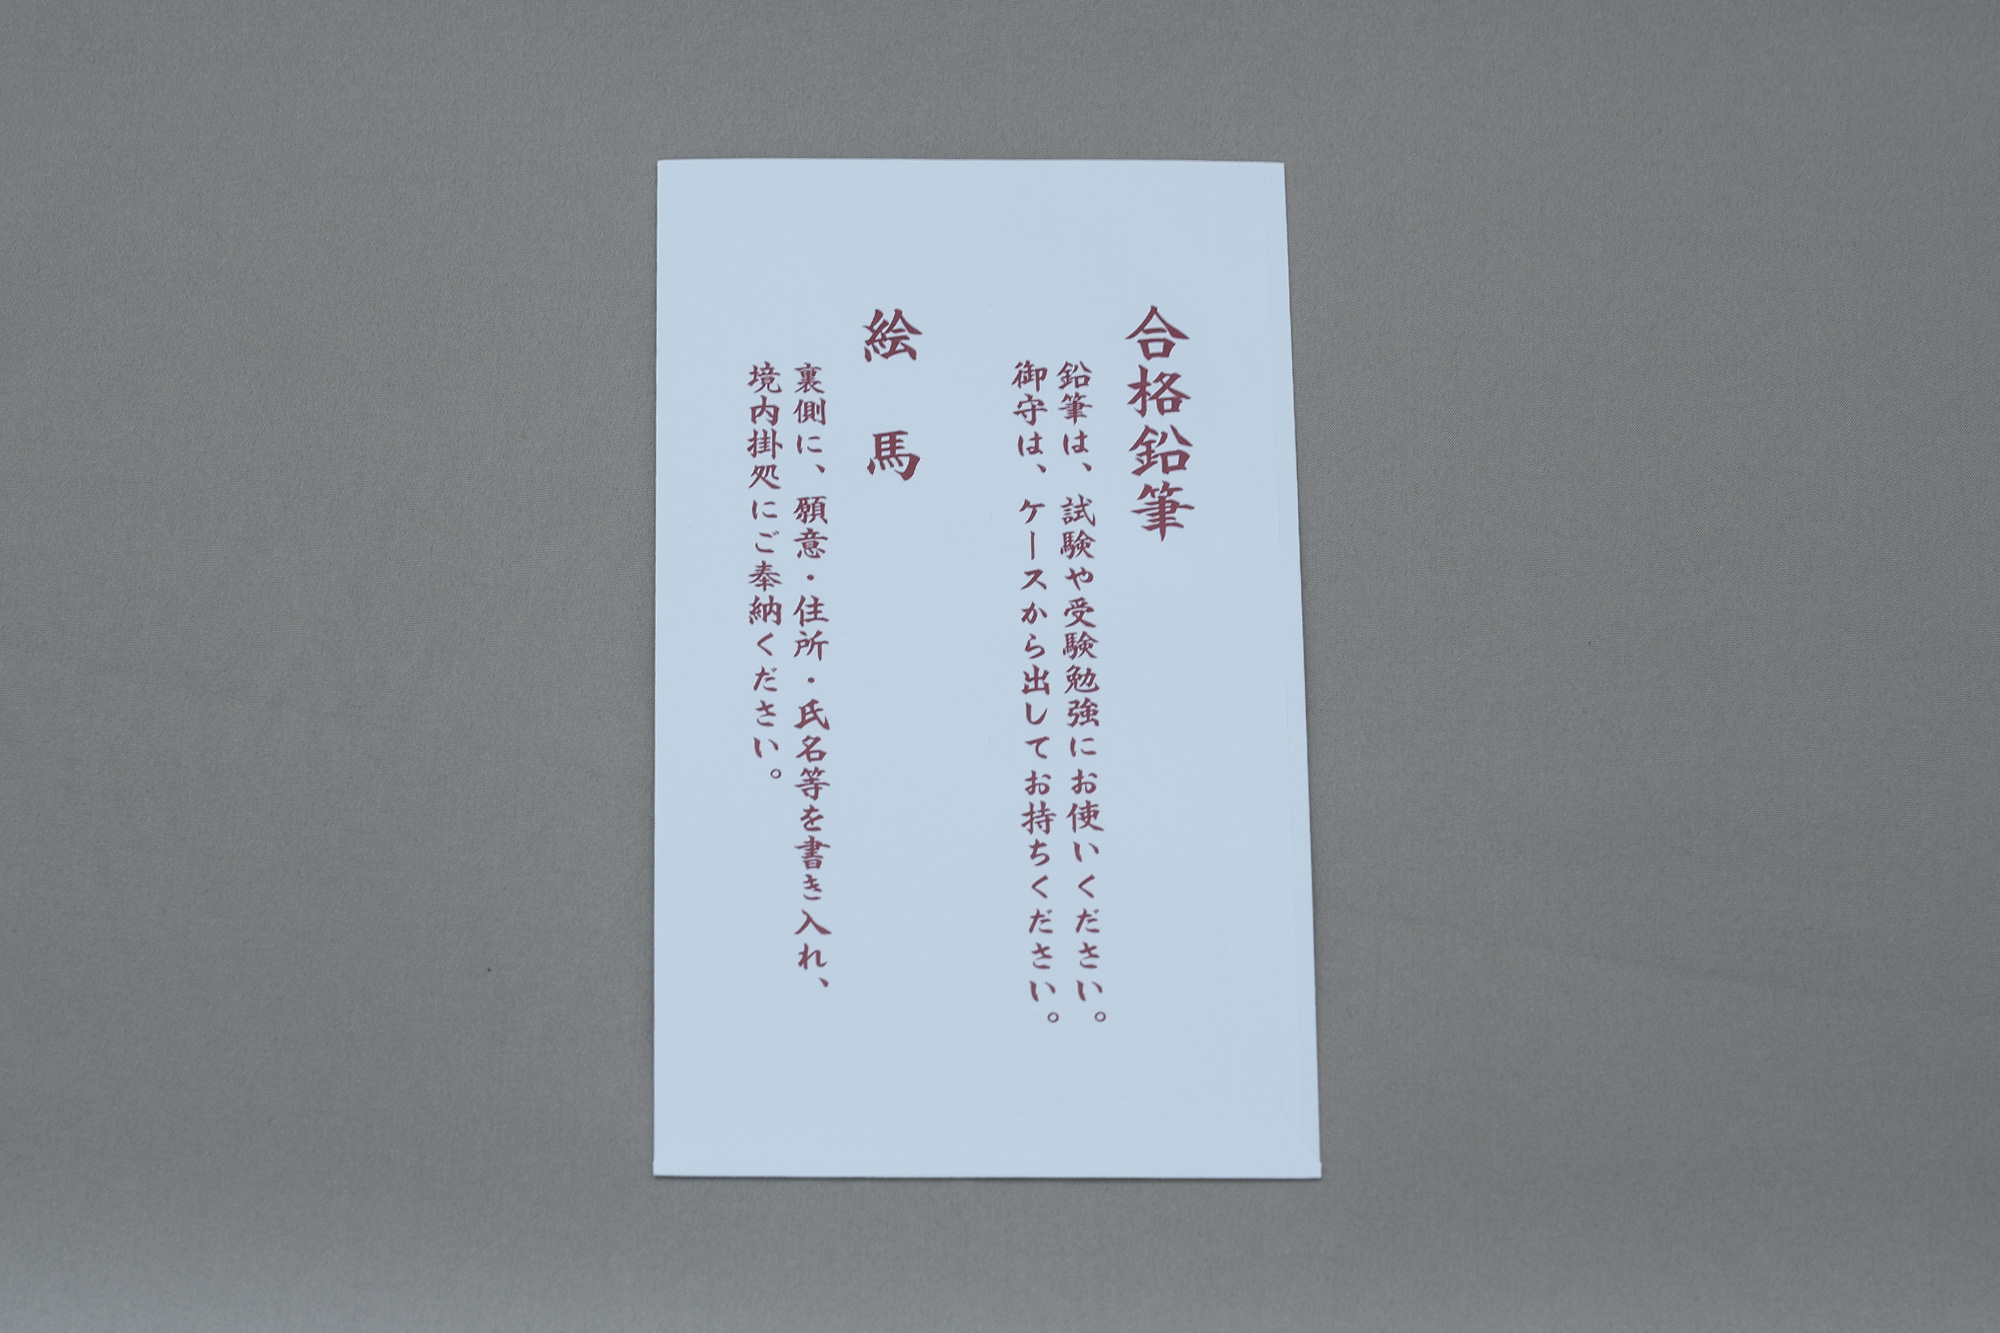 合格鉛筆
鉛筆は、試験や受験勉強にお使いください。
御守は、ケースから出してお持ちください。
絵馬
裏側に、願意・住所・氏名等を書き入れ、
境内掛処にご奉納ください。